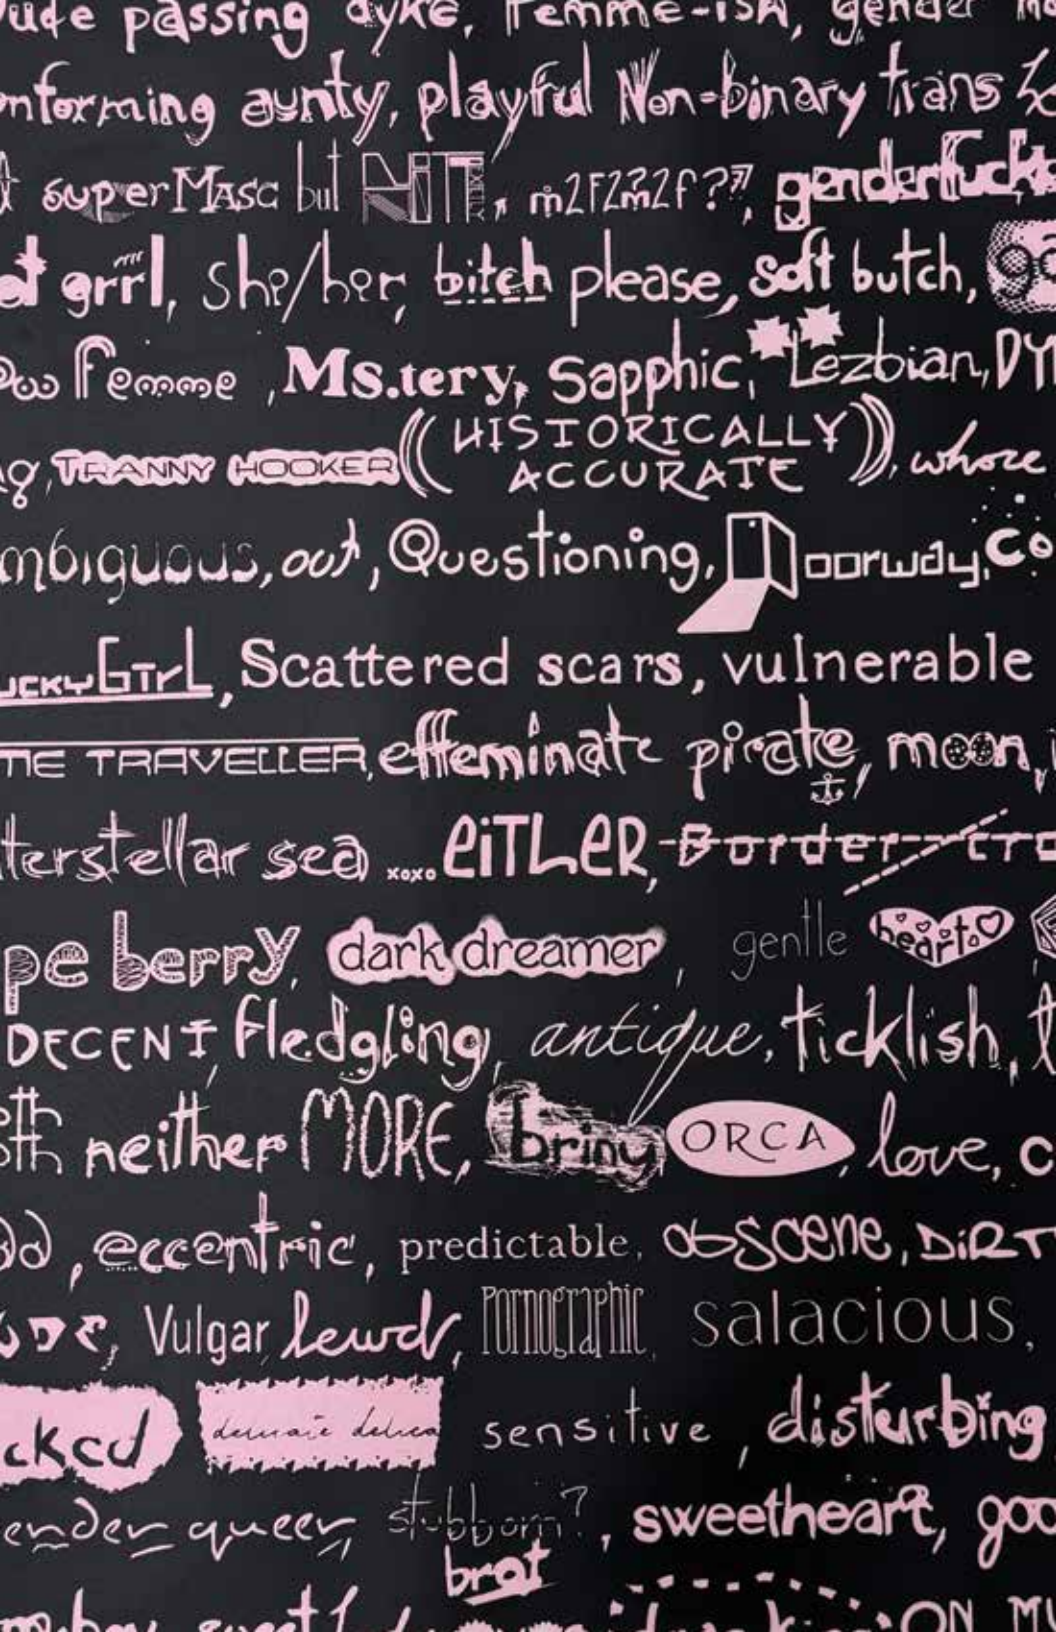 passing dyke, Femme-ish, gender
aunty, playful Non-binary trans
superMasc but NOT, m2F2?2m2f??, genderfuck
grrl, she/her, bitch please, soft butch,
femme, Ms.tery, Sapphic, Lezbian,
TRANNY HOOKER ((HISTORICALLY ACCURATE)), whore
out, Questioning, Doorway,
Scattered scars, vulnerable
TRAVELLER, effeminate pirate, moon,
sea ....xoxo EiTHER, Border
berry, dark dreamer, gentle heart,
DECENT, fledgling, antique, ticklish,
neither MORE, briny ORCA, love,
eccentric, predictable, obscene,
Vulgar, lewd, Pornographic, salacious,
sensitive, disturbing
queer, stubborn?, sweetheart,
brat
ON